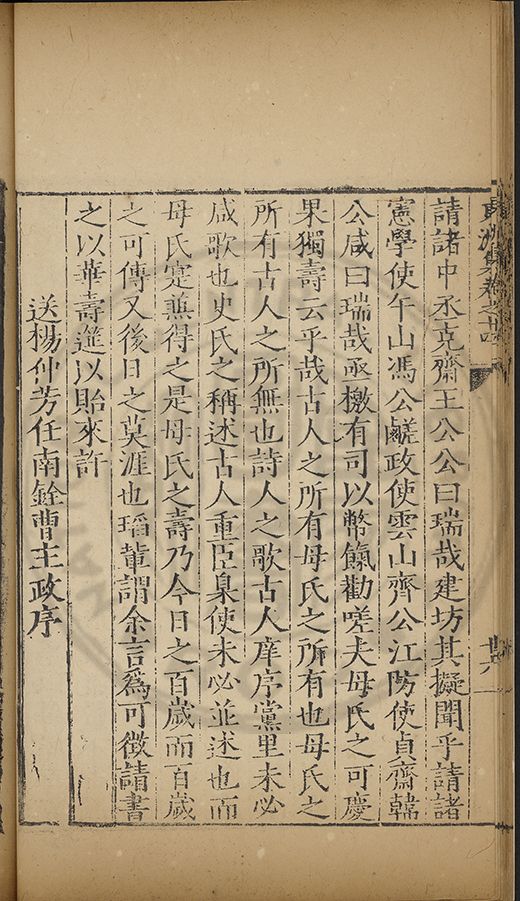 集卷之十四
廿六
請諸中丞克齋王公公曰瑞哉建坊其擬聞乎請諸
憲學使午山馮公鹺政使雲山齊公江防使貞齋韓
公咸曰瑞哉亟檄有司以幣餼勸嗟夫母氏之可慶
果獨壽云乎哉古人之所有母氏之所有也母氏之
所有古人之所無也詩人之歌古人庠序黨里未必
咸歌也史氏之稱述古人重臣臬使未必並述也而
母氏寔兼得之是母氏之壽乃今日之百歲而百歲
之可傳又後日之莫涯也瑫輩謂余言爲可徵請書
之以華壽筵以貽來許
送楊仲芳任南銓曹主政序